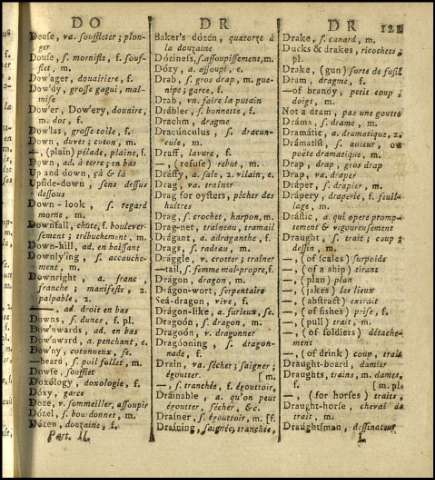 DO
Douse, va. souffleter; plon-
ger
Douse, s. mornifle, f. souf-
flet, m.
Dow'ager, douairiere, f.
Dow'dy, grosse gagui, mal-
mise
Dow'er, Dow'ery, douaire,
m. dot, f.
Dow'las, grosse toile, f.
Down, duvet; coton, m.
—, (plain) pélade, plaine, f.
Down, ad. à terre; en bas
Up and down, çà & là
Upside-down, sens dessus
dessous
Down-look, s. regard
morne, m.
Downfall, chute, f. boulever-
sement; trébuchement, m.
Down-hill, ad. en baissant
Downly'ing, s. accouche-
ment, m.
Downright, a. franc,
franche; manifeste, 2.
palpable, 2.
—, ad. droit en bas
Downs, s. dunes, f. pl.
Dow'nwards, ad. en bas
Dow'nward, a. penchant, e.
Dow'ny, cotonneux, se.
—beard, s. poil follet, m.
Dowse, soufflet
Doxólogy, doxologie, f.
Dóxy, garce
Doze, v. sommeiller, assoupir
Dózel, s. bourdonnet, m.
Dózen, douzaine; f.
Part. II.
DR
Baker's dózen, quatorze à
la douzaine
Dóziness, s. assoupissement, m.
Dózy, a. assoupi, e.
Drab, s. gros drap, m. gue-
nipe; garce, f.
Drab, vn. faire la putain
Drábler, s. bonnette, f.
Drachm, dragme
Dracúnculus, s. dracun-
cule, m.
Draff, lavure, f.
—, (refuse) rebut, m.
Dráffy, a. sale, 2. vilain, e.
Drag, va. traîner
Drag for oysters, pécher des
huîtres
Drag, s. crochet, harpon, m.
Drag-net, traîneau, tramail
Drágant, s. adraganthe, f.
Drags, s. radeau, m.
Drággle, v. crotter; traîner
—tail, s. femme mal-propre, f.
Drágon, dragon, m.
Dragon-wort, serpentaire
Sea-dragon, vive, f.
Drágon-like, a. furieux, se.
Dragoón, s. dragon, m.
Dragoón, v. dragonner
Dragooning, s. dragon-
nade, f.
Drain, va. sécher; saigner;
égoutter [m.
—, s. tranchée, f. égouttoir,
Dráinable, a. qu'on peut
égoutter, sécher, &c.
Drainer, s. égouttoir, m. [f.
Draining, saignée, tranchée,
DR
Drake, s. canard, m.
Ducks & drakes, ricochets,
pl.
Drake, (gun) sorte de fusil
Dram, dragme, f.
—of brandy, petit coup,
doigt, m.
Not a dram, pas une goutte
Dráma, s. drame, m.
Dramátic, a. dramatique, 2.
Drámatist, s. auteur, ou
poëte dramatique, m.
Drap, drap, gros drap
Drap, va. draper
Dráper, s. drapier, m.
Drápery, draperie, f. feuil-
lage, m.
Drástic, a. qui opere promp-
tement & vigoureusement
Draught, s. trait; coup;
dessin, m.
—, (of scales) surpoids
—, (of a ship) tirant
—, (plan) plan
—, (jakes) les lieux
—, (abstract) extrait
—, (of fishes) prise, f.
—, (pull) trait, m.
—, (of soldiers) détache-
ment
—, (of drink) coup, trait
Draught-board, damier
Draughts, trains, m. dames,
f. [m. pl.
—, (for horses) traits,
Draught-horse, cheval de
trait, m.
Draughtsman, dessinateur
L